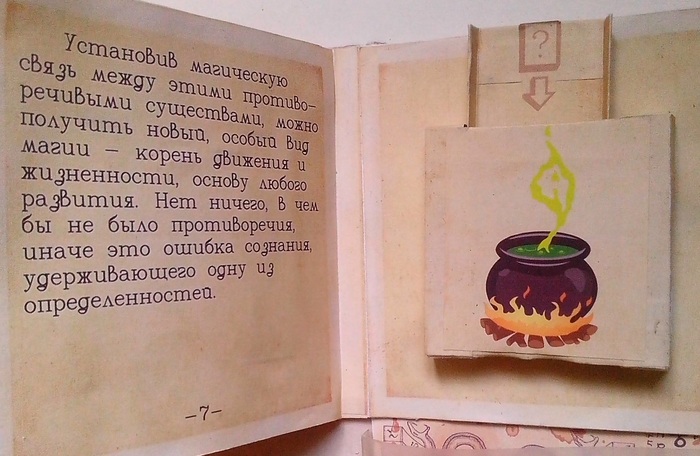 Установив магическую
связь между этими противо-
речивыми существами, можно
получить новый, особый вид
магии – корень движения и
жизненности, основу любого
развития. Нет ничего, в чем
бы не было противоречия,
иначе это ошибка сознания,
удерживающего одну из
определенностей.
–7–
?